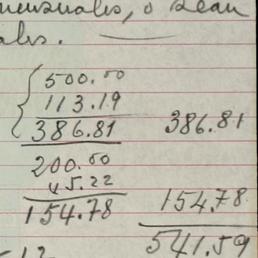 mensuales, o sean
ales.
500.00
113.19
386.81 386.81
200.00
45.22
154.78 154.78
541.59